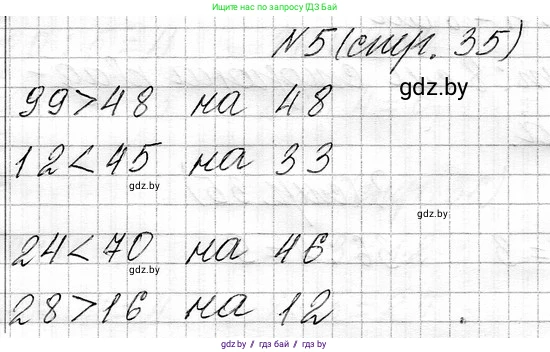 Делай пометки по запросу (ГДЗ БАЙ)
N5 (стр. 35)
gdz.by
99>48 на 48
12<45 на 33
gdz.by
gdz.by
24<70 на 46
gdz.by
28>16 на 12
gdz.by / гдз.бай / gdz.by